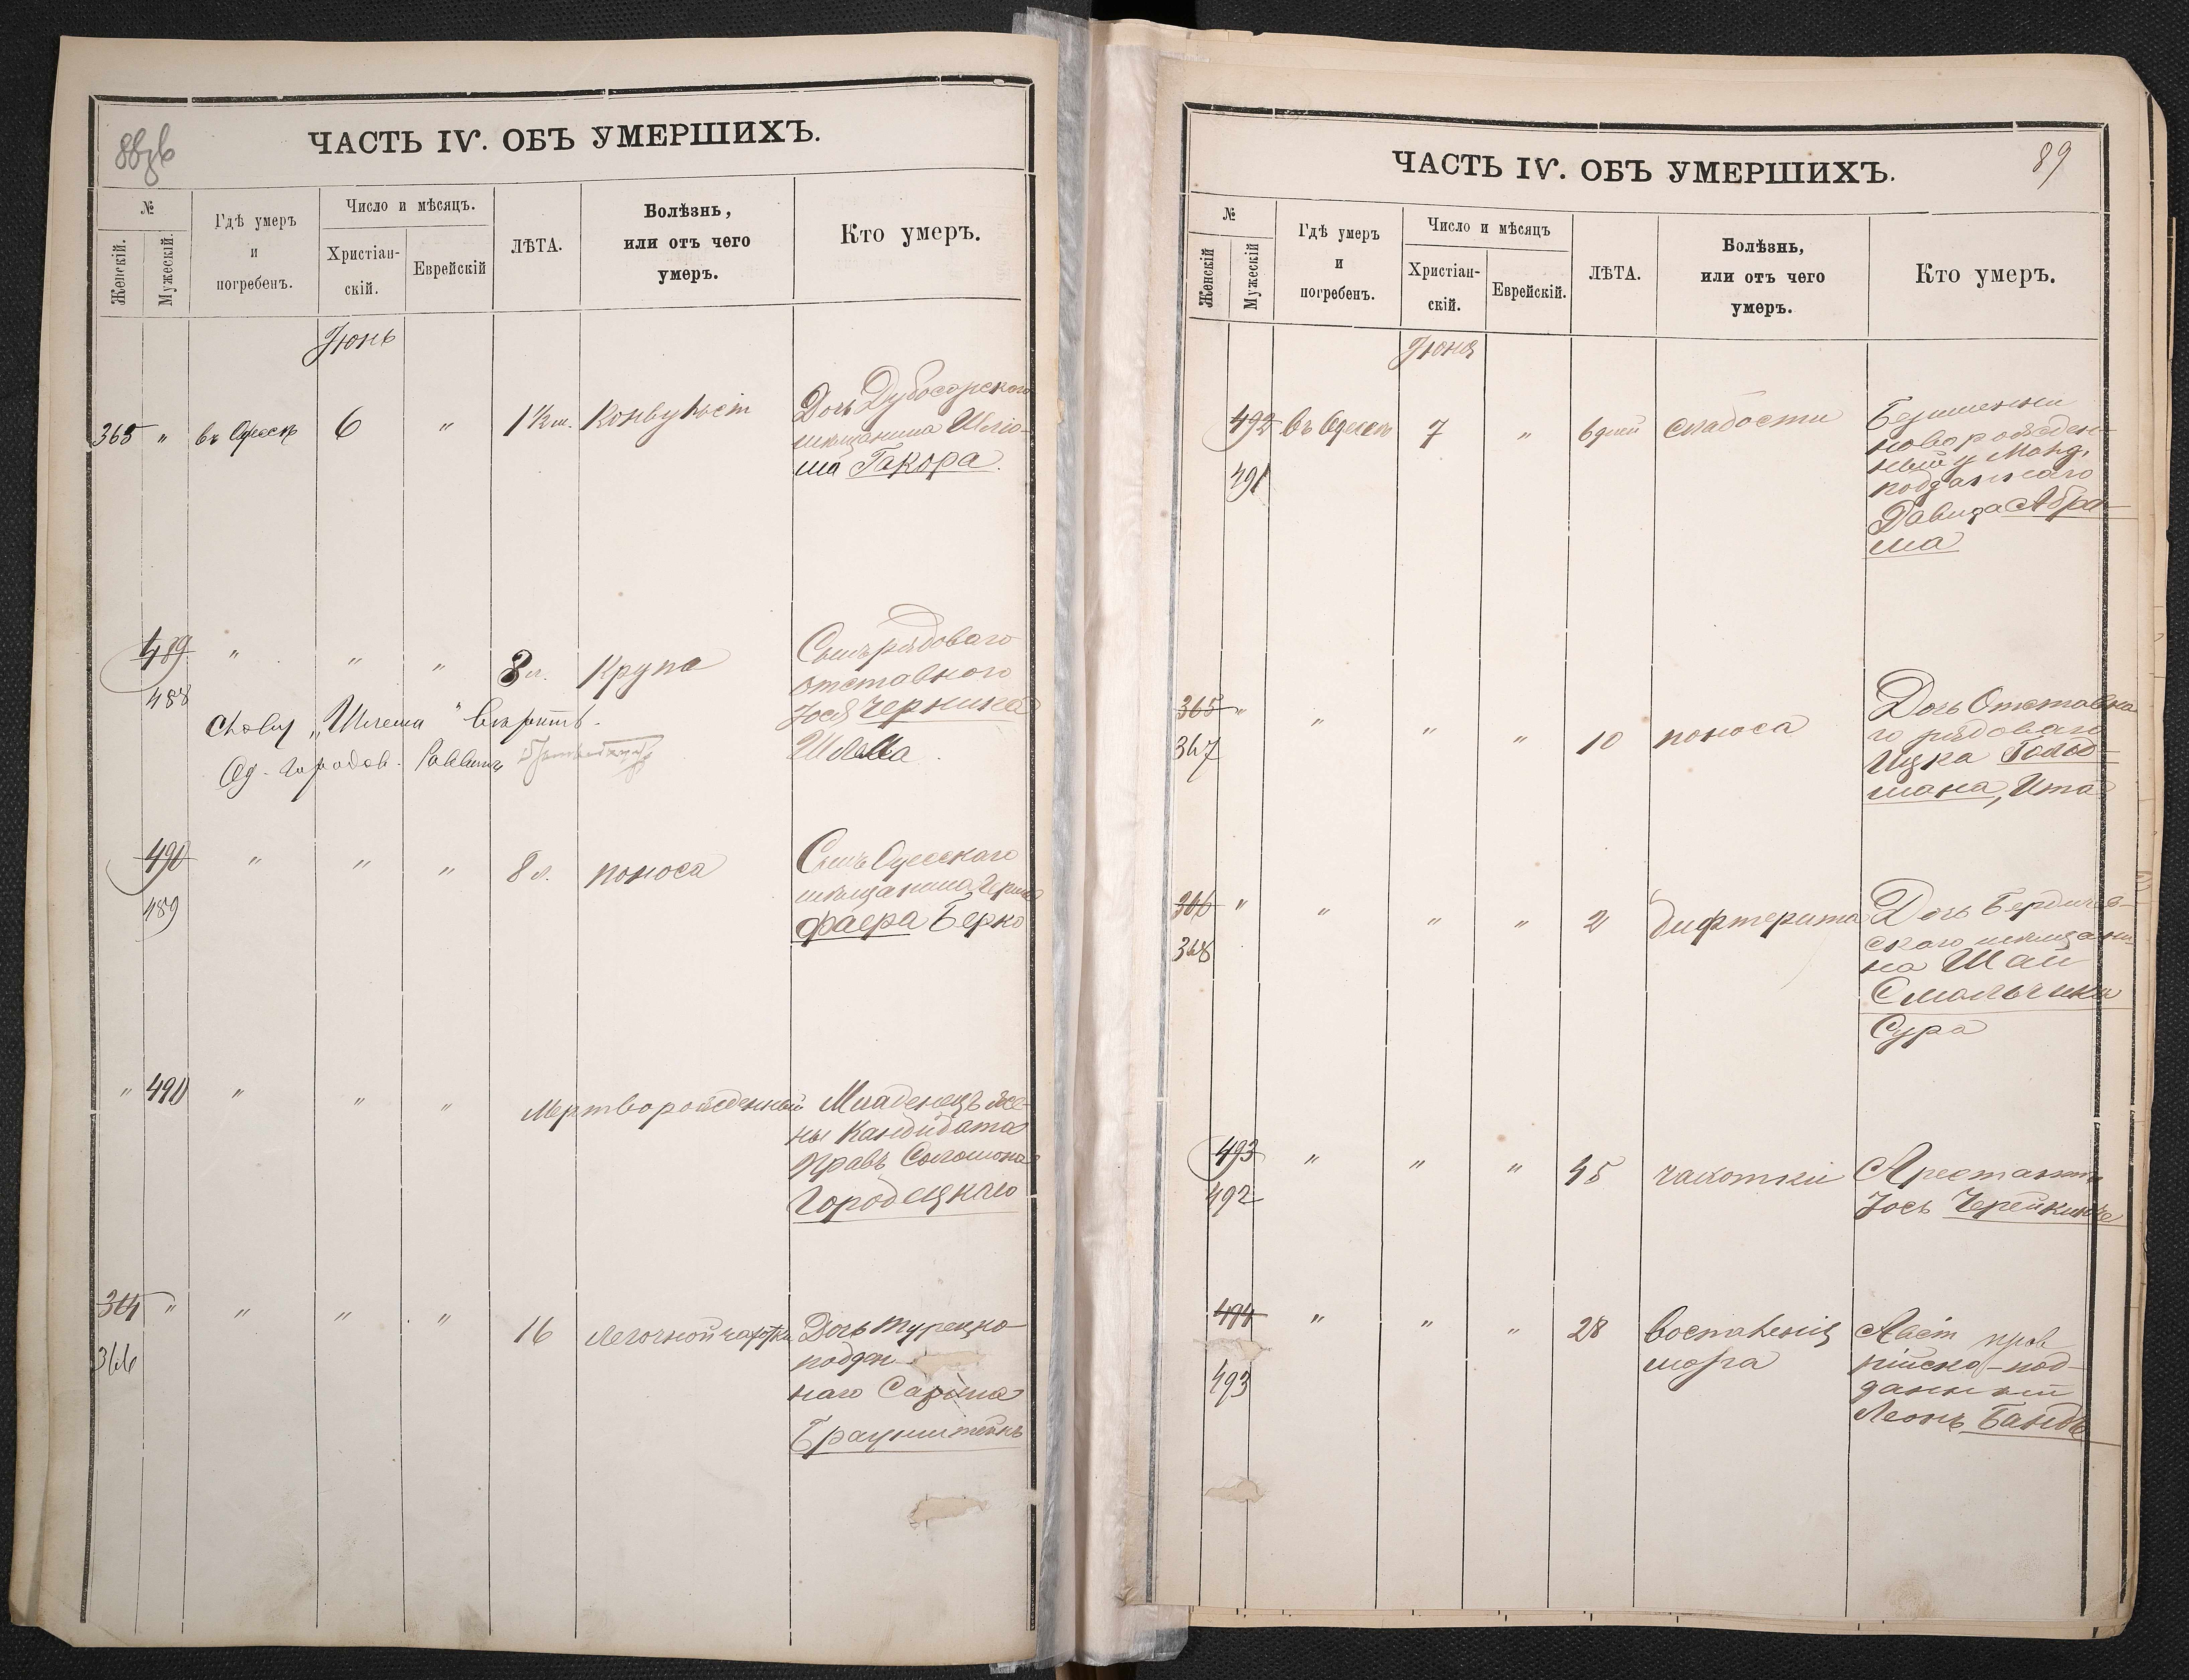 ЧАСТЬ IV. ОБЪ УМЕРШИХЪ.
№
Женскій.
Мужескій.
Гдѣ умеръ
и
погребенъ.
Число и мѣсяцъ.
Христіан-
скій.
Еврейскій
ЛѢТА.
Болѣзнь,
или отъ чего
умеръ.
Кто умеръ.
Іюнь
365 " въ Одессѣ 6 " 1½ Конвульсіи
Дочь Дубосарскаго
мѣщанина Шліо-
ма Гакора.
489 " " " 3 л. Крупа
488
Сынъ рядоваго
отставного
Іося Черкина
Шлема
Слову „Шлема" вѣрить.
Од. Городов. Раввинъ
490 " " " 8 л. поноса
489
Сынъ Одесскаго
мѣщанина Герша
Фаера Берко
" 490 " " " Мертворожденный
Младенецъ же-
ны Кандидата
Правъ Соломона
Городецкаго
364 " " " " 16 Легочной чахотки
366
Дочь турецко
поддан-
наго
Браунштейнъ
ЧАСТЬ IV. ОБЪ УМЕРШИХЪ.
89
№
Женскій
Мужескій
Гдѣ умеръ
и
погребенъ.
Число и мѣсяцъ
Христіан-
скій.
Еврейскій.
ЛѢТА.
Болѣзнь,
или отъ чего
умеръ.
Кто умеръ.
Іюня
492 въ Одессѣ 7 " 6 дней слабости
491
новорожден-
ный
подданнаго
Давида Абра-
ма
365 " " " " 10 поноса
367
Дочь Отставна
го рядоваго
Ицка Голод-
мана, Ита
366 " " " " 2 дифтерита
368
Дочь Бердичев-
скаго мѣщани-
на Шаи
Смольчика
Сура
493 " " " 45 чахотки
492
Арестантъ
Іось
494 " " " 28 воспаленія
493 мозга
Авст
рійско-под-
данный
Леонъ Бандъ